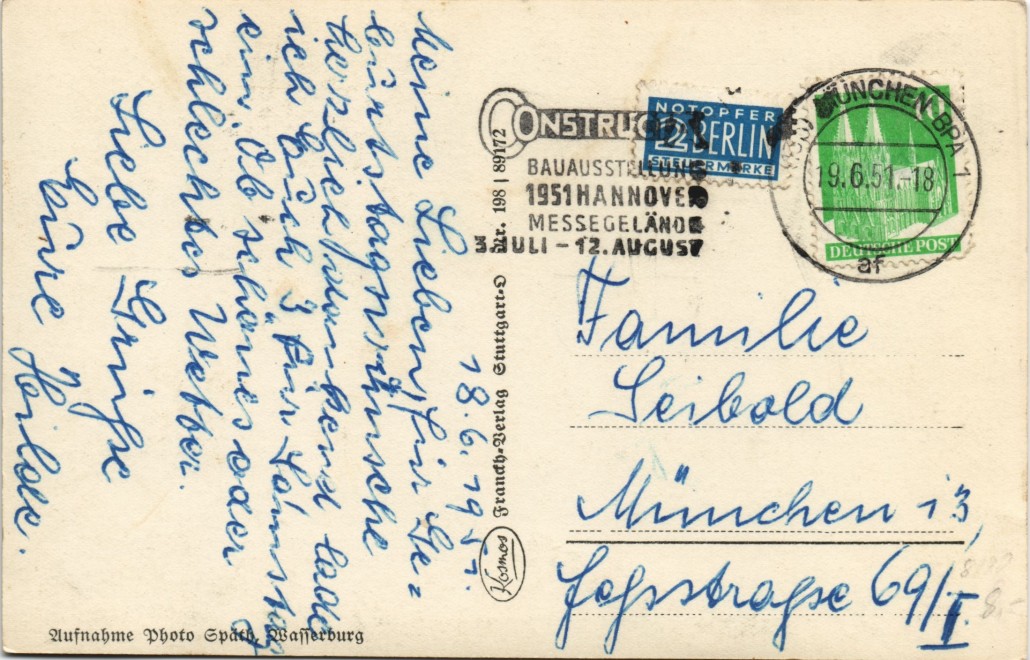 18.6.1951.
Meine Lieben, für Ge=
burtstagswünsche
herzlich dankend lade
ich Euch 3 für Samstag
ein. Ob schönes oder
schlechtes Wetter.
Liebe Grüße
Eure Heilde.
Nr. 198 | 89172
Franckh-Verlag Stuttgart-O
Kosmos
Aufnahme Photo Späth, Wasserburg
CONSTRUCTA
BAUAUSSTELLUNG
1951 HANNOVER
MESSEGELÄNDE
3. JULI - 12. AUGUST
NOTOPFER
2 BERLIN
STEUERMARKE
MÜNCHEN BPA 1
19.6.51.-18
af
DEUTSCHE POST
Familie
Seibold
München 13,
Heßstraße 69/I
8,-